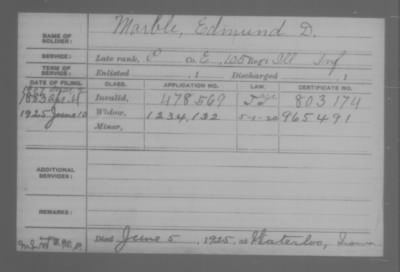 NAME OF SOLDIER: Marble, Edmund D.
SERVICE: Late rank, C Co. E, 105 Reg't Ill Inf
TERM OF SERVICE: Enlisted , 1 Discharged , 1
DATE OF FILING. CLASS. APPLICATION NO. LAW. CERTIFICATE NO.
1883 Invalid, 478569 803174
1925 June 10 Widow, 1234,132 5-1-20 965491
Minor,
ADDITIONAL SERVICES:
REMARKS:
Died June 5, 1925, at Waterloo, Iowa